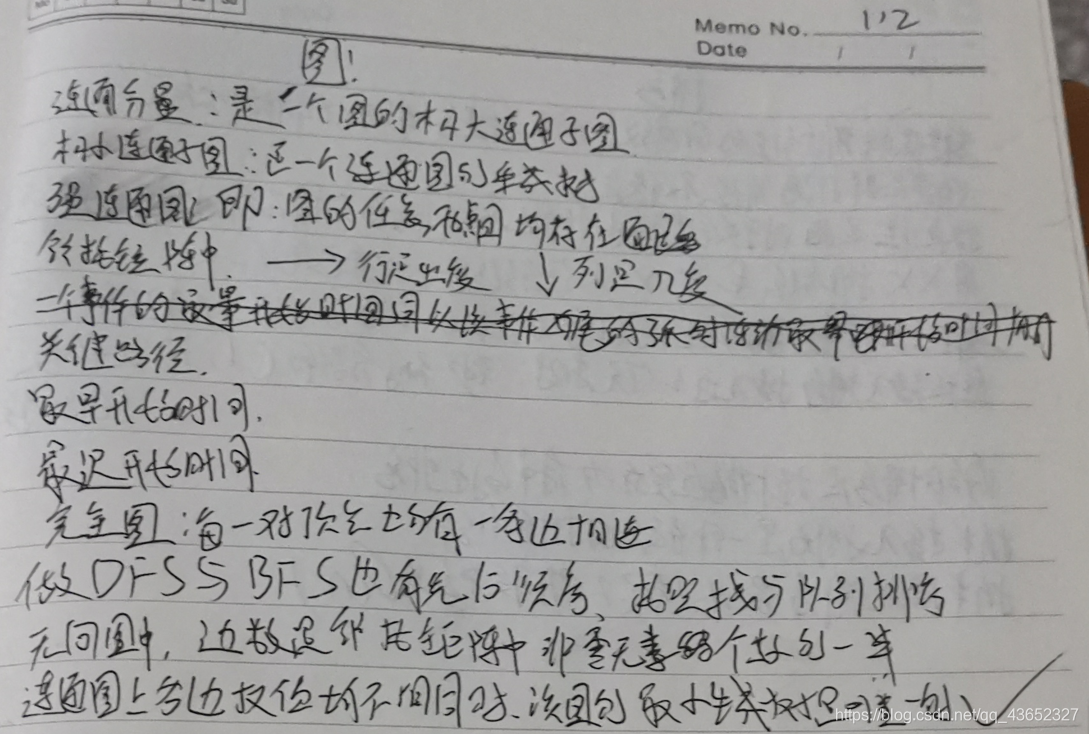 Memo No. 112
Date / /
图!
连通分量:是一个图的极大连通子图
极小连通子图:是一个连通图的生成树
强连通图:即:图的任意两点间均存在通路
邻接矩阵中. → 行是出度 ↓ 列是入度
一个事件的最早开始时间同以该事件为尾的弧的活动最早开始时间相同
关键路径.
最早开始时间.
最迟开始时间.
完全图:每一对顶点均有一条边相连
做DFS与BFS也有先后顺序、按照栈与队列排序
无向图中,边数是邻接矩阵中非零元素个数的一半
连通图上各边权值均不同时、该图的最小生成树是唯一的
https://blog.csdn.net/qq_43652327